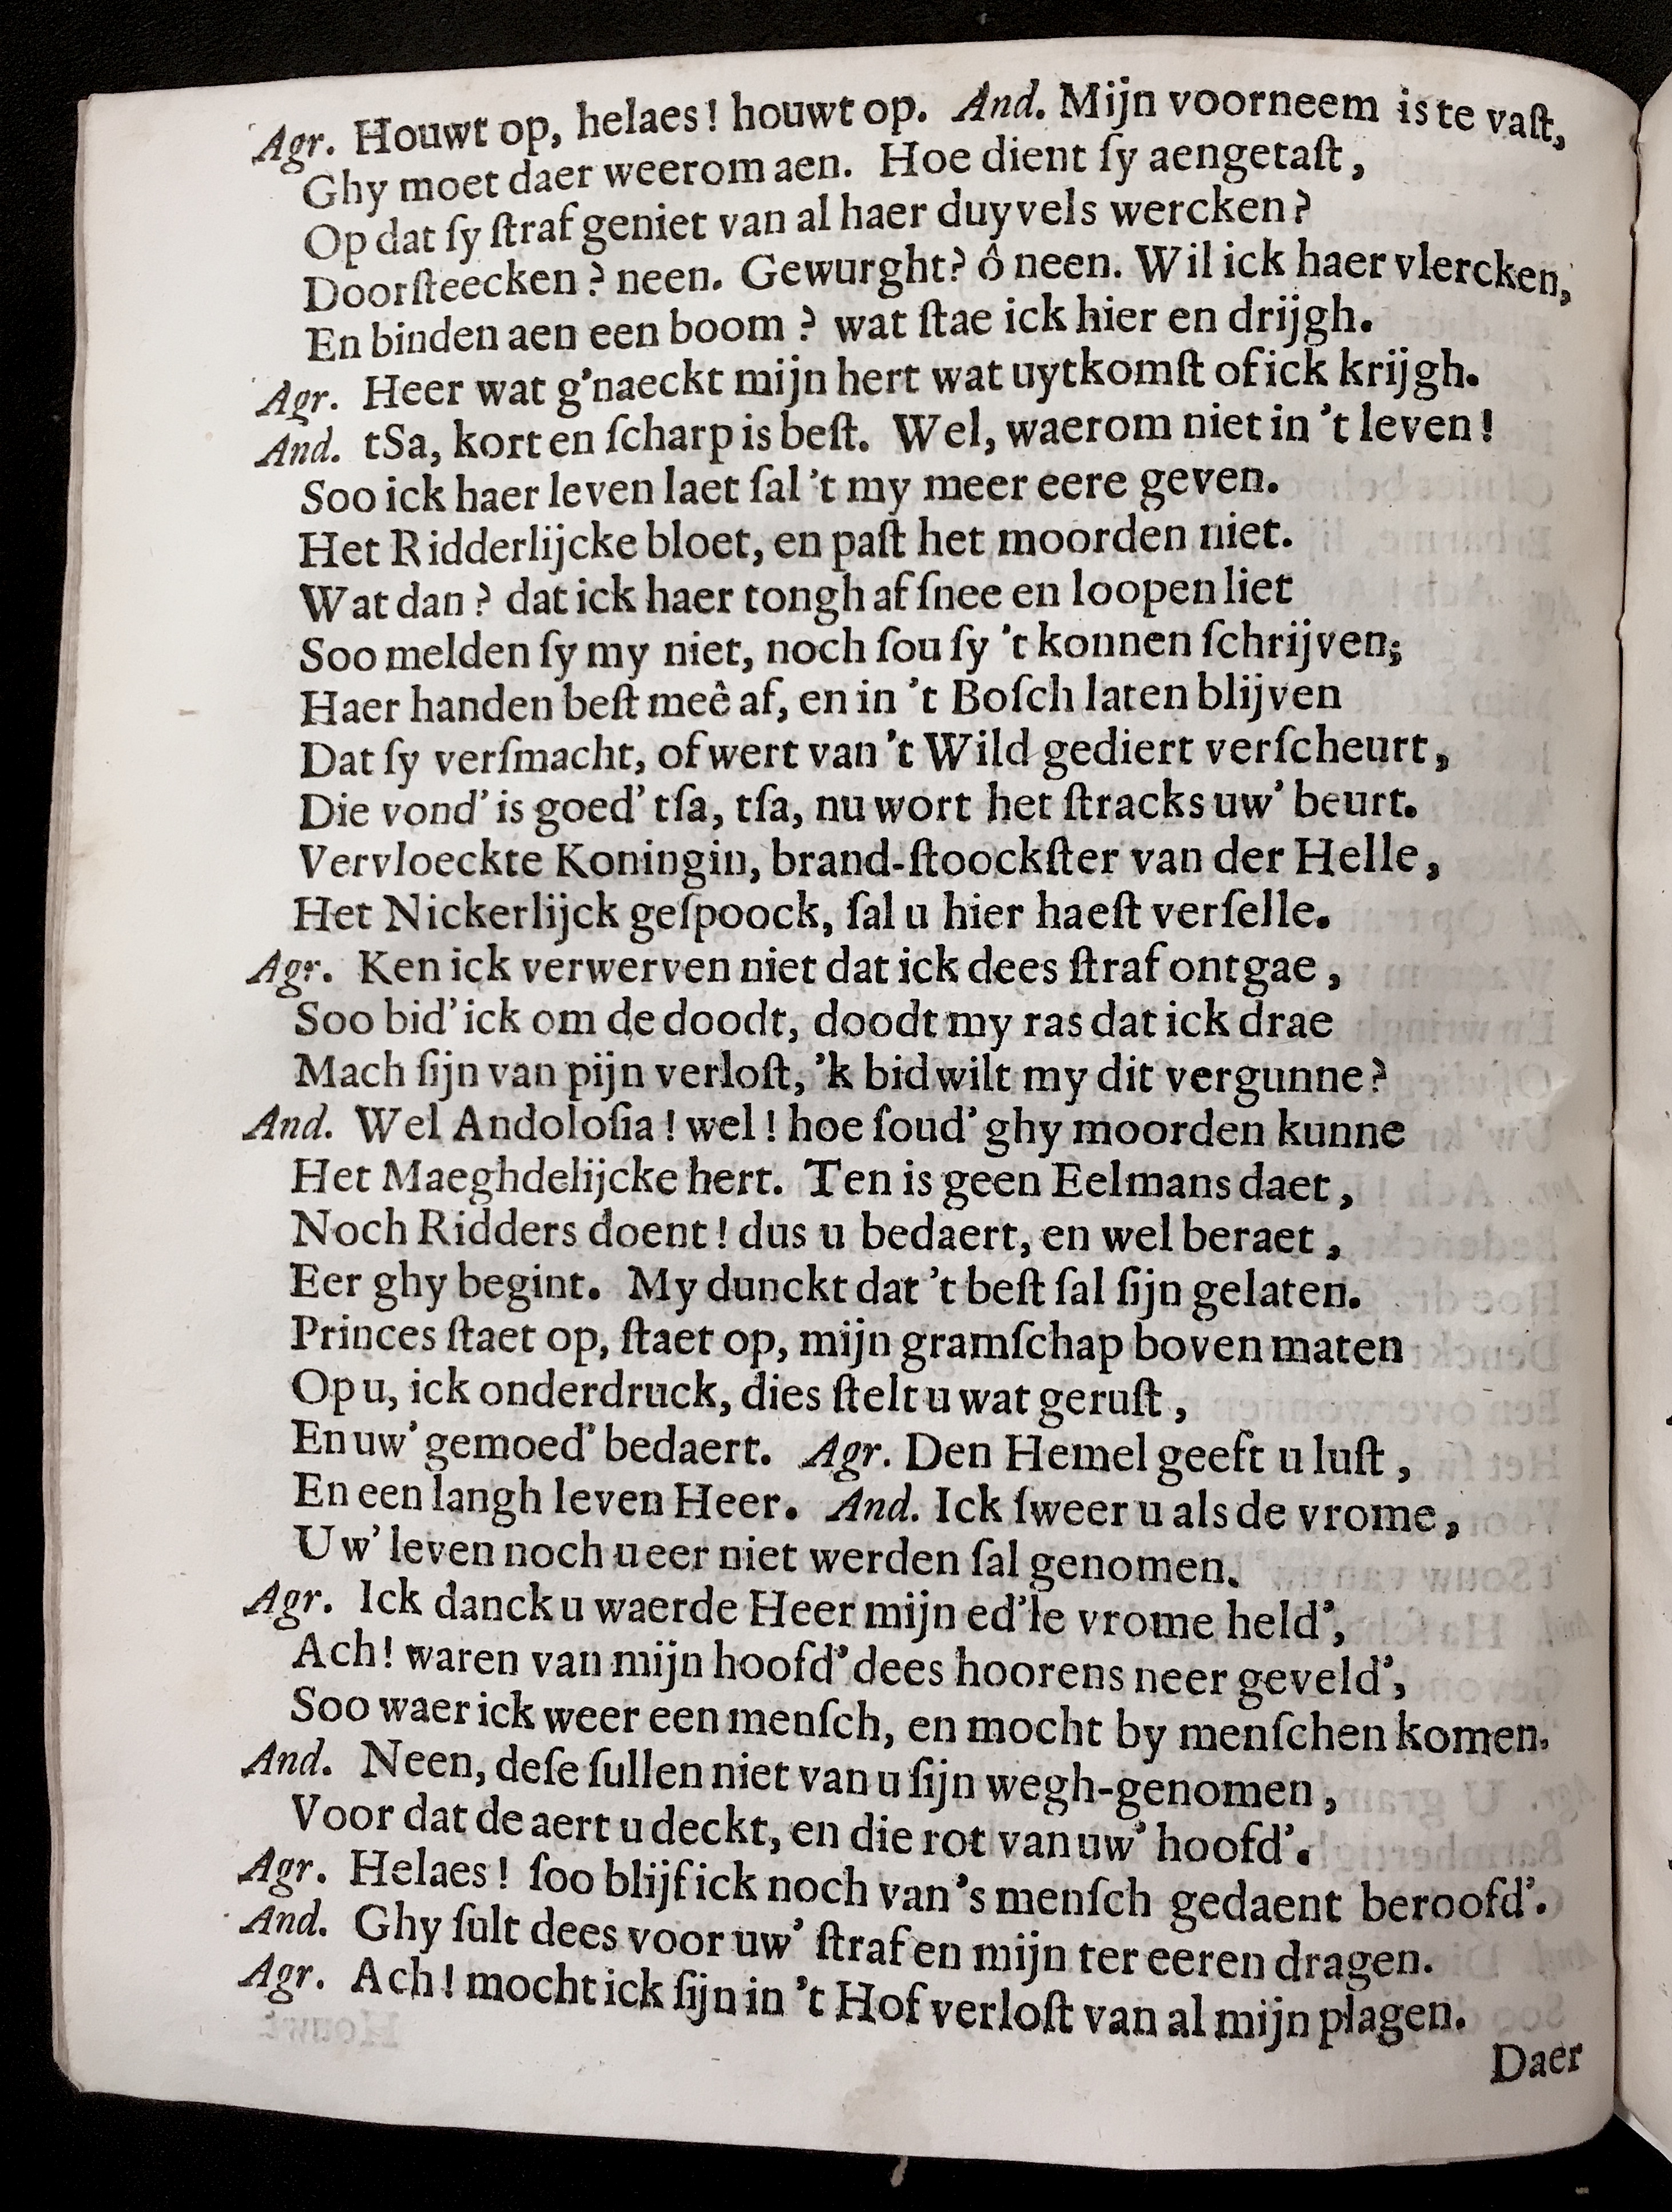 Agr. Houwt op, helaes! houwt op. And. Mijn voorneem is te vaſt,
Ghy moet daer weerom aen. Hoe dient ſy aengetaſt,
Op dat ſy ſtraf geniet van al haer duyvels wercken?
Doorſteecken? neen. Gewurght? ô neen. Wil ick haer vlercken,
En binden aen een boom? wat ſtae ick hier en drijgh.
Agr. Heer wat g'naeckt mijn hert wat uytkomſt of ick krijgh.
And. tSa, kort en ſcharp is beſt. Wel, waerom niet in 't leven!
Soo ick haer leven laet ſal 't my meer eere geven.
Het Ridderlijcke bloet, en paſt het moorden niet.
Wat dan? dat ick haer tongh af ſnee en loopen liet
Soo melden ſy my niet, noch ſou ſy 't konnen ſchrijven;
Haer handen beſt meê af, en in 't Boſch laten blijven
Dat ſy verſmacht, of wert van 't Wild gediert verſcheurt,
Die vond' is goed' tſa, tſa, nu wort het ſtracks uw' beurt.
Vervloeckte Koningin, brand-ſtoockſter van der Helle,
Het Nickerlijck geſpoock, ſal u hier haeſt verſelle.
Agr. Ken ick verwerven niet dat ick dees ſtraf ontgae,
Soo bid' ick om de doodt, doodt my ras dat ick drae
Mach ſijn van pijn verloſt, 'k bid wilt my dit vergunne?
And. Wel Andoloſia! wel! hoe ſoud' ghy moorden kunne
Het Maeghdelijcke hert. Ten is geen Eelmans daet,
Noch Ridders doent! dus u bedaert, en wel beraet,
Eer ghy begint. My dunckt dat 't beſt ſal ſijn gelaten.
Princes ſtaet op, ſtaet op, mijn gramſchap boven maten
Op u, ick onderdruck, dies ſtelt u wat geruſt,
En uw' gemoed' bedaert. Agr. Den Hemel geeft u luſt,
En een langh leven Heer. And. Ick ſweer u als de vrome,
Uw' leven noch u eer niet werden ſal genomen.
Agr. Ick danck u waerde Heer mijn ed'le vrome held',
Ach! waren van mijn hoofd' dees hoorens neer geveld',
Soo waer ick weer een menſch, en mocht by menſchen komen.
And. Neen, deſe ſullen niet van u ſijn wegh-genomen,
Voor dat de aert u deckt, en die rot van uw' hoofd'.
Agr. Helaes! ſoo blijf ick noch van 's menſch gedaent beroofd'.
And. Ghy ſult dees voor uw' ſtraf en mijn ter eeren dragen.
Agr. Ach! mocht ick ſijn in 't Hof verloſt van al mijn plagen.
Daer